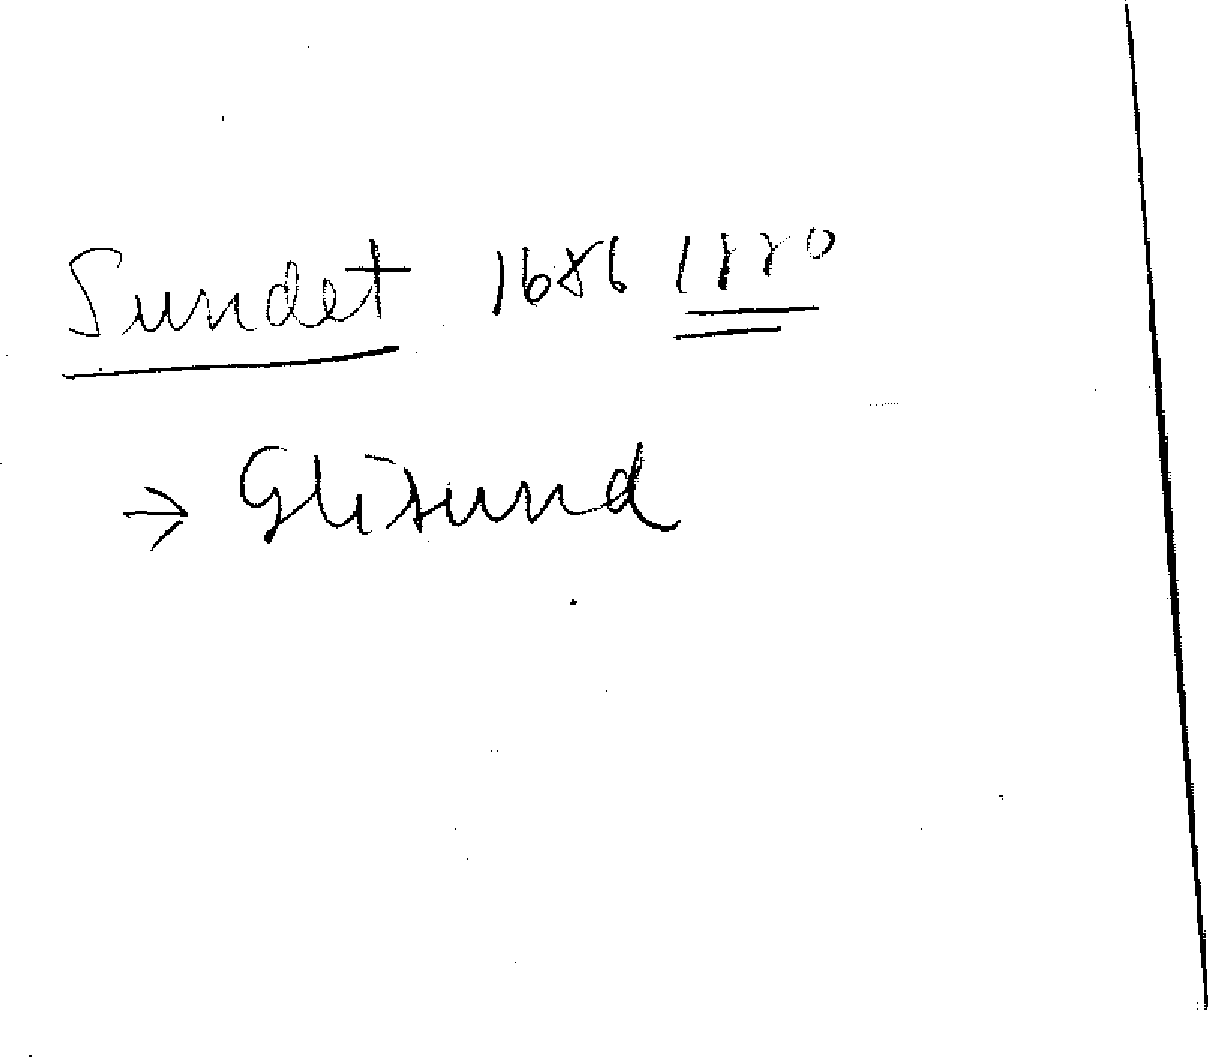 Sundet 1686 1880
→ Glisund